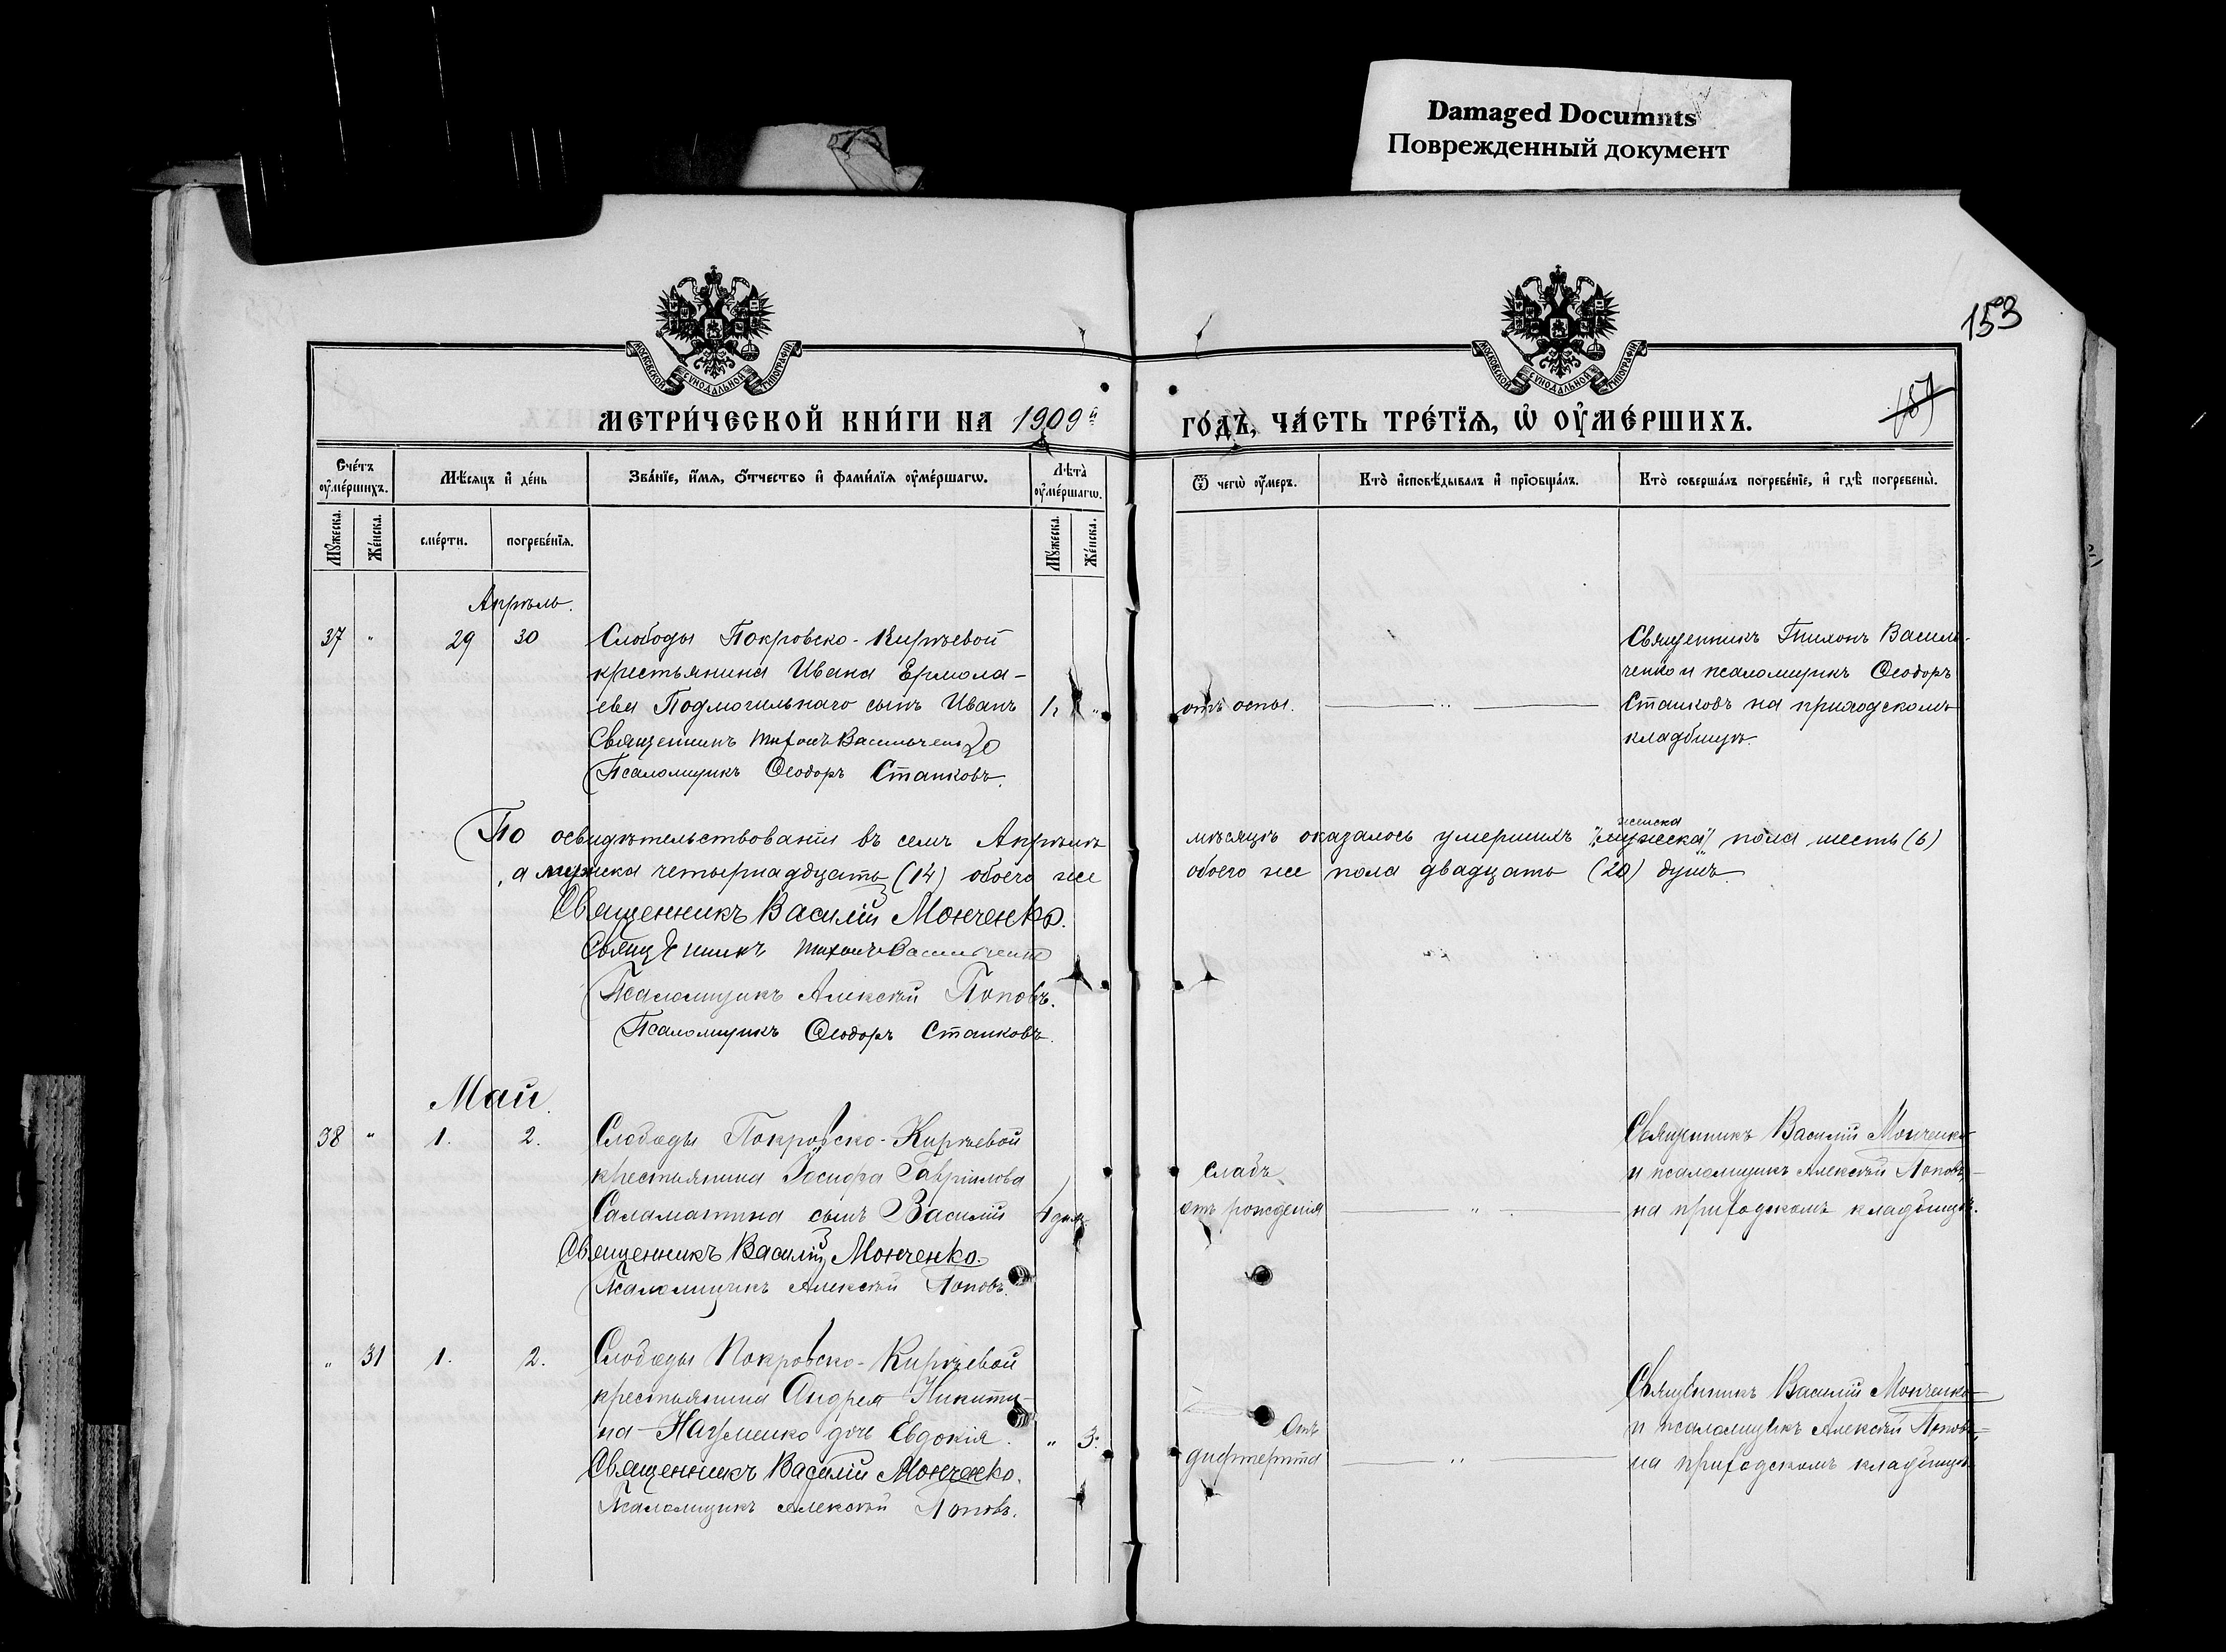 Damaged Documnts
Поврежденный документ
153
МОСКОВСКОЙ СѴНОДАЛЬНОЙ ТИПОГРАФІИ
МОСКОВСКОЙ СѴНОДАЛЬНОЙ ТИПОГРАФІИ
МЕТРИ́ЧЕСКОЙ КНИ́ГИ НА 1909й
ГО́ДЪ, ЧА́СТЬ ТРЕ́ТЇѦ, Ѡ҆ ОУ҆МЕ́РШИХЪ.
Сче́тъ оу҆ме́ршихъ.
Мѣ́сѧцъ и҆ де́нь
Зва́нїе, и҆́мѧ, ѻ҆́тчество и҆ фами́лїѧ оу҆ме́ршагѡ.
Лѣ́та̀ оу҆ме́ршагѡ.
Ѿ чегѡ̀ оу҆́меръ.
Кто̀ и҆сповѣ́дывалъ и҆ прїѡбща́лъ.
Кто̀ соверша́лъ погребе́нїе, и҆ гдѣ̀ погребены̀.
Мꙋ́жеска.
Же́нска.
сме́рти.
погребе́нїѧ.
Мꙋ́жеска.
Же́нска.
Апрѣль.
37 " 29 30 Слободы Покровско-Кирѣевой
крестьянина Ивана Ермола-
ева Подмогильнаго сынъ Иванъ 1. "
Священникъ Тихонъ Васильченко
Псаломщикъ Ѳеодоръ Станковъ.
отъ оспы.
Священникъ Тихонъ Василь-
ченко и псаломщикъ Ѳеодоръ
Станковъ на приходскомъ
кладбищѣ.
По освидѣтельствованіи въ семъ Апрѣлѣ мѣсяцѣ оказалось умершихъ "мужеска" пола шесть (6)
женска
, а мужска четырнадцать (14) обоего же обоего же пола двадцать (20) душъ.
Священникъ Василій Мончен​ко.
Священникъ Тихонъ Васильченко
Псаломщикъ Алексѣй Поповъ.
Псаломщикъ Ѳеодоръ Станковъ.
Май.
38 " 1. 2. Слободы Покровско-Кирѣевой
крестьянина Іосифа Гаврілова
Саламатина сынъ Василій 4 дня
Священникъ Василій Монченко.
Псаломщикъ Алексѣй Поповъ.
Слабъ
отъ рожденія
Священникъ Василій Монченко
и псаломщикъ Алексѣй Поповъ,
на приходскомъ кладбищѣ.
" 31 1. 2. Слободы Покровско-Кирѣевой
крестьянина Андрея Никити-
на Науменко дочь Евдокія. " 3.
Священникъ Василій Монченко.
Псаломщикъ Алексѣй Поповъ.
Отъ
дифтерита
Священникъ Василій Монченко
и псаломщикъ Алексѣй Поповъ,
на приходскомъ кладбищѣ